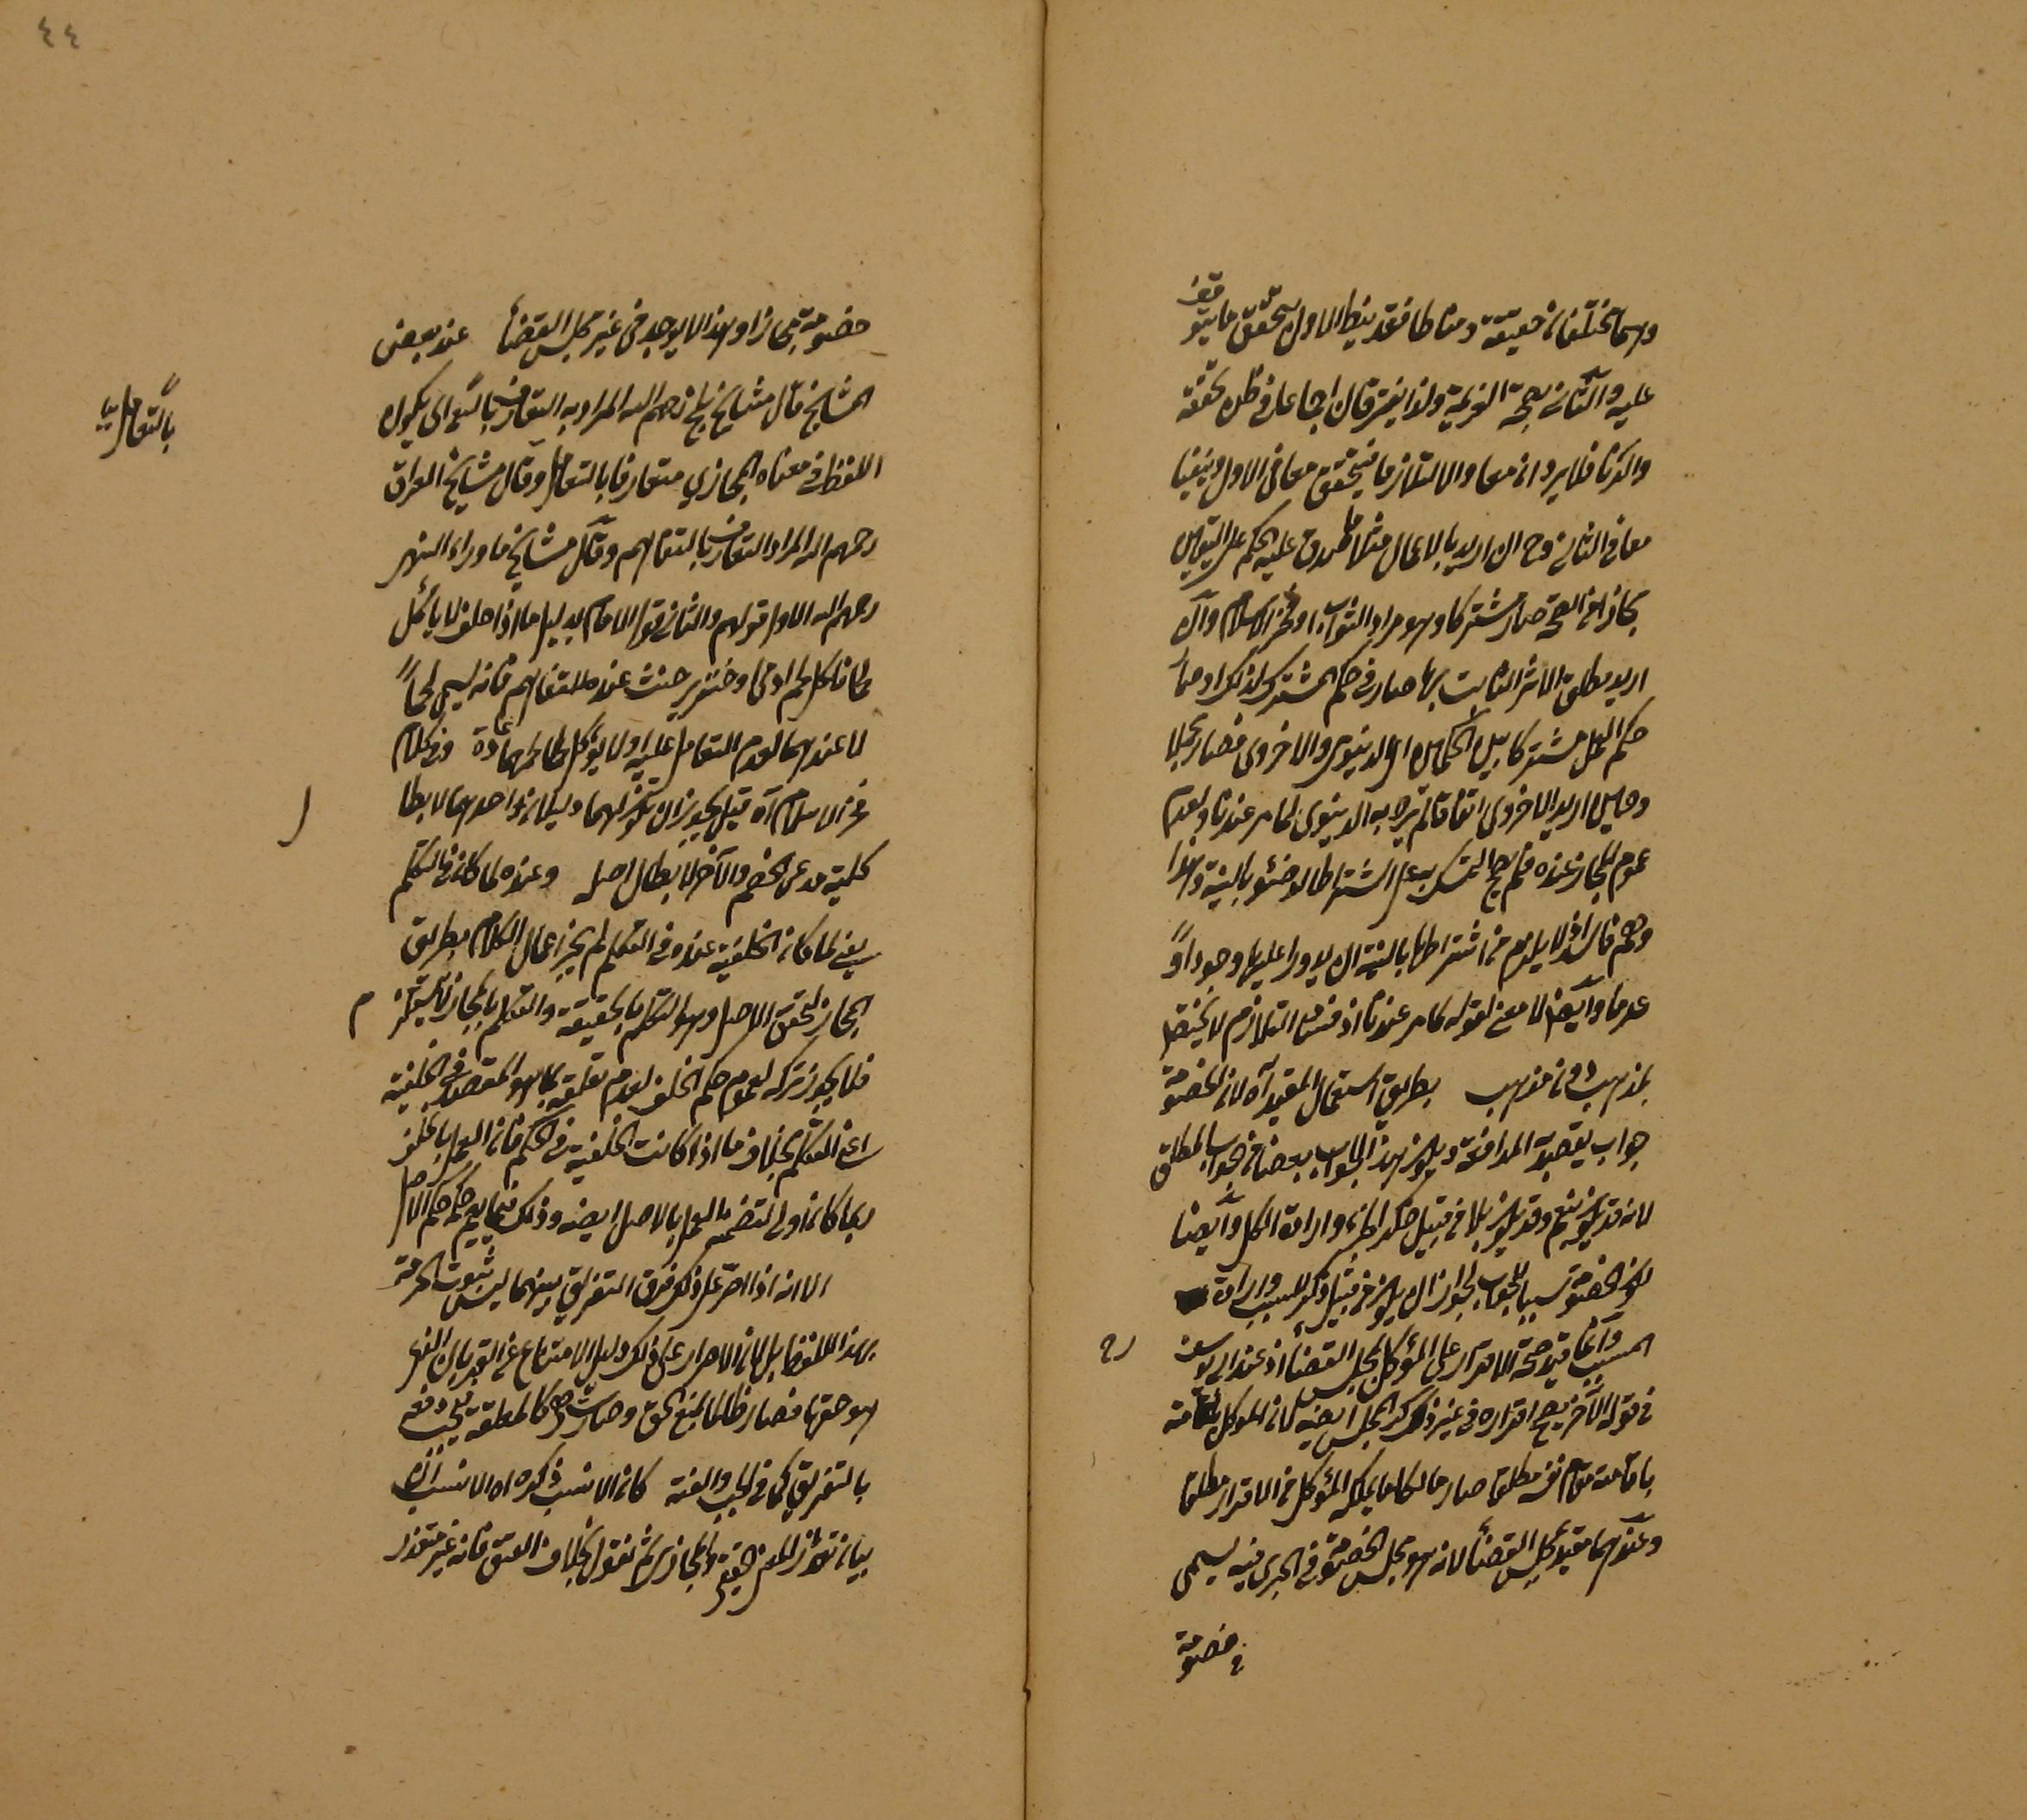 وهما مختلفان حقيقة ومناطا فقد ينط الاول بتحقق ما يتوقف
عليه والثاني بصحة العزيمة ولذا يفترقان اجماعا في ظن تحققه
والركن فلا يرد ان معا والا تلازما فيتحقق معا في الاول وينتفيا
معا في الثاني وح ان اريد بالاعمال مثلما صدق عليه الحكم على التعيين
مجازا في الصحة صار مشتركا وهو مراد الثواب او فخر الاسلام وان
اريد مطلق الاثر الثابت بها صار في حكم المشترك لذلك او معا
حكم العمل مشتركا بين الحكمين اي الدنيوي والاخروي فصار مجملا
وحين اريد الاخروي اتفاقا لم يرد به الدنيوي لما مر عندنا ولعدم
عموم المجاز عنده فلم يصح التمسك به على اشتراط الوضوء بالنية وهذا
وهم فاسد اذ لا يلزم من اشتراطها بالنية ان يدورا عليها وجودا و
عدما وايضا لا معنى لقوله كما مر عندنا اذ فساد التلازم لا يختص
بمذهب دون مذهب بطريق استعمال المقيد آه لان الخصومة
جواب يقصد به المدافعة ويكون هذا الجواب بعضا من الجواب المطلق
لانه قد يكون بنعم وقد يكون بلا من قبيل ذكر الجزء وارادة الكل وايضا
لكون الخصومة سببا للجواب لجواز ان يكون من قبيل ذكر السبب وارادة
المسبب وانما قيد صحة الاقرار على الموكل بمجلس القضاء اذ عند ابي يوسف
في قوله الآخر يصح اقراره في غير ذلك المجلس ايضا لان الموكل اقامه
باقامته مقام نفسه مطلقا صار مالكا ما يملكه الموكل من الاقرار مطلقا
وعندهما مقيد بمجلس القضاء لانه هو مجلس الخصومة فما يجري فيه يسمى
خصومة
٤٤
خصومة مجازا وهذا لا يوجد في غير مجلس القضاء عند بعض
المشايخ قال مشايخ بلخ رحمهم الله المراد به التعارف بالتعامل اي يكون
بالتعامل
اللفظ في معناه المجازي متعارفا بالتعامل وقال مشايخ العراق
رحمهم الله المراد التعارف بالتفاهم وقال مشايخ ما وراء النهر
رحمهم الله الاول قولهم والثاني قول الامام بدليل ما اذا حلف لا ياكل
لحما فاكل لحم آدمي او خنزير حنث عنده للتفاهم فانه يسمى لحما
لا عندهما لعدم التعامل عليه اذ لا يؤكل لحمهما عادة وفي كلام
فخر الاسلام آه قيل يجوز ان يكون لهما دليلان احدهما لابطال
كلية مدعى الخصم والآخر لابطال اصله وعنده لما كان في التكلم
يعني لما كان الخلفية عنده في التكلم لم يجز اعمال الكلام بطريق
المجاز لتحقق الاصل وهو التكلم بالحقيقة والتكلم بالمجاز
فلا يجوز تركه لعموم حكم الخلف لعدم تعلقه بما هو المقصود في الخلفية
اعني التكلم بخلاف ما اذا كانت الخلفية في الحكم فان العمل بالخلف
ربما كان اولى لتضمنه العمل بالاصل ايضا وذلك فيما يعم حكمه حكم الاصل
الا انه اذا اصر على ذلك فرق التفريق بينهما ليس ثبوت الحرمة
بهذا اللفظ بل لان الاصرار على ذلك دليل الامتناع عن القربان الذي
هو حقها فصار ظالما بمنع الحق وصارت هي كالمعلقة فيجب دفعه
بالتفريق كما في الجب والعنة كان الانسب ذكره اه الانسب انه
بيان تعذر المعنى الحقيقي والمجازي ثم نقول بخلاف العتق فانه غير متعذر